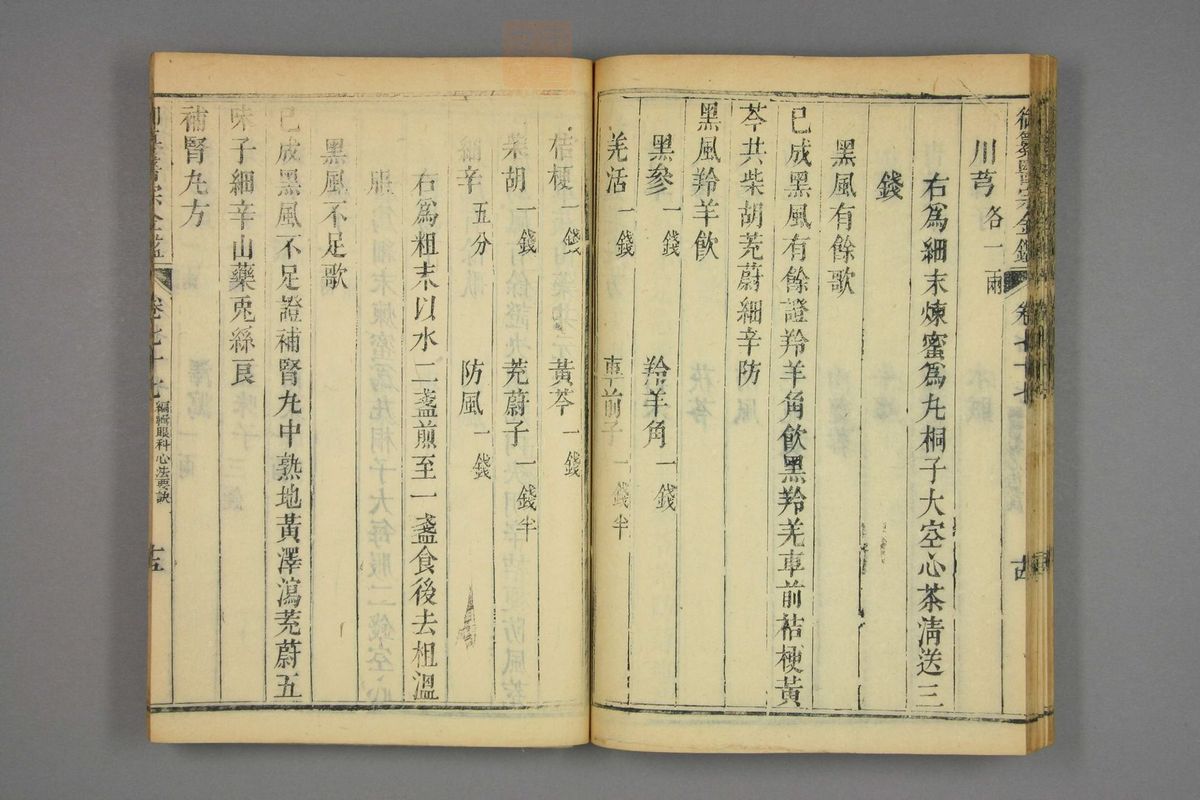 御纂醫宗金鑑 卷七十七 古
川芎各一兩
右為細末煉蜜為丸桐子大空心茶清送三
錢
黑風有餘歌
已成黑風有餘證羚羊角飲黑羚羌車前桔梗黃
芩共柴胡茺蔚細辛防
黑風羚羊飲
黑參一錢 羚羊角一錢
羌活一錢 車前子一錢半
桔梗一錢 黃芩一錢
柴胡一錢 茺蔚子一錢半
細辛五分 防風一錢
右為粗末以水二盞煎至一盞食後去柤溫
黑風不足歌
已成黑風不足證補腎丸中熟地黃澤瀉茺蔚五
味子細辛山藥兎絲良
補腎丸方
卷七十七 編輯眼科心法要訣